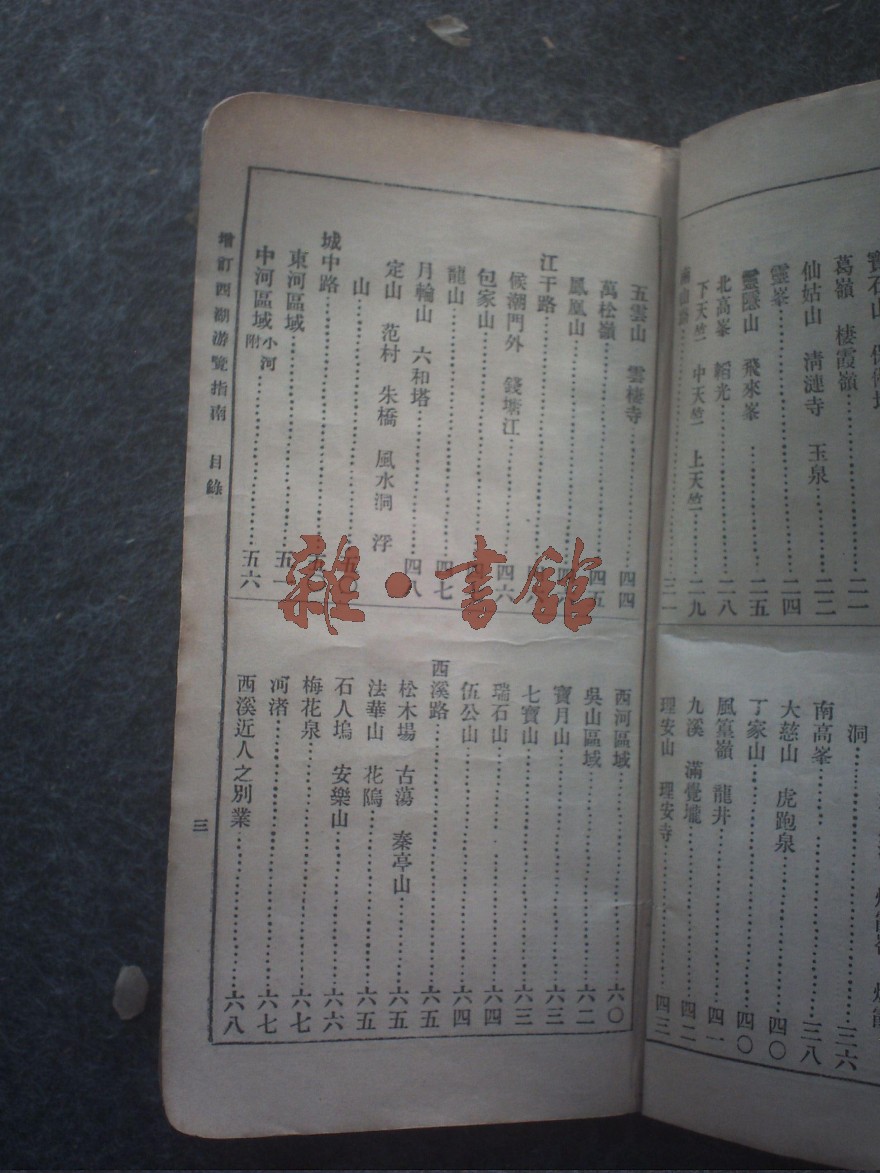 葛嶺 棲霞嶺
二一
仙姑山 清漣寺 玉泉
二二
靈峯
二四
靈隱山 飛來峯
二五
北高峯 韜光
二八
下天竺 中天竺 上天竺
二九
三一
洞
三六
南高峯
三八
大慈山 虎跑泉
四〇
丁家山
四〇
風篁嶺 龍井
四一
九溪 滿覺壠
四二
理安山 理安寺
四三
五雲山 雲棲寺
四四
萬松嶺
四五
鳳凰山
江干路
候潮門外 錢塘江
四六
包家山
龍山
四七
月輪山 六和塔
四八
定山 范村 朱橋 風水洞 浮
山
五〇
城中路
東河區域
五一
中河區域 附小河
五六
西河區域
六〇
吳山區域
六二
寶月山
六三
七寶山
六三
瑞石山
六四
伍公山
六四
西溪路
六五
松木場 古蕩 秦亭山
六五
法華山 花塢
六五
石人塢 安樂山
六六
梅花泉
六七
河渚
六七
西溪近人之別業
六八
增訂西湖游覽指南 目錄
三
雜·書館